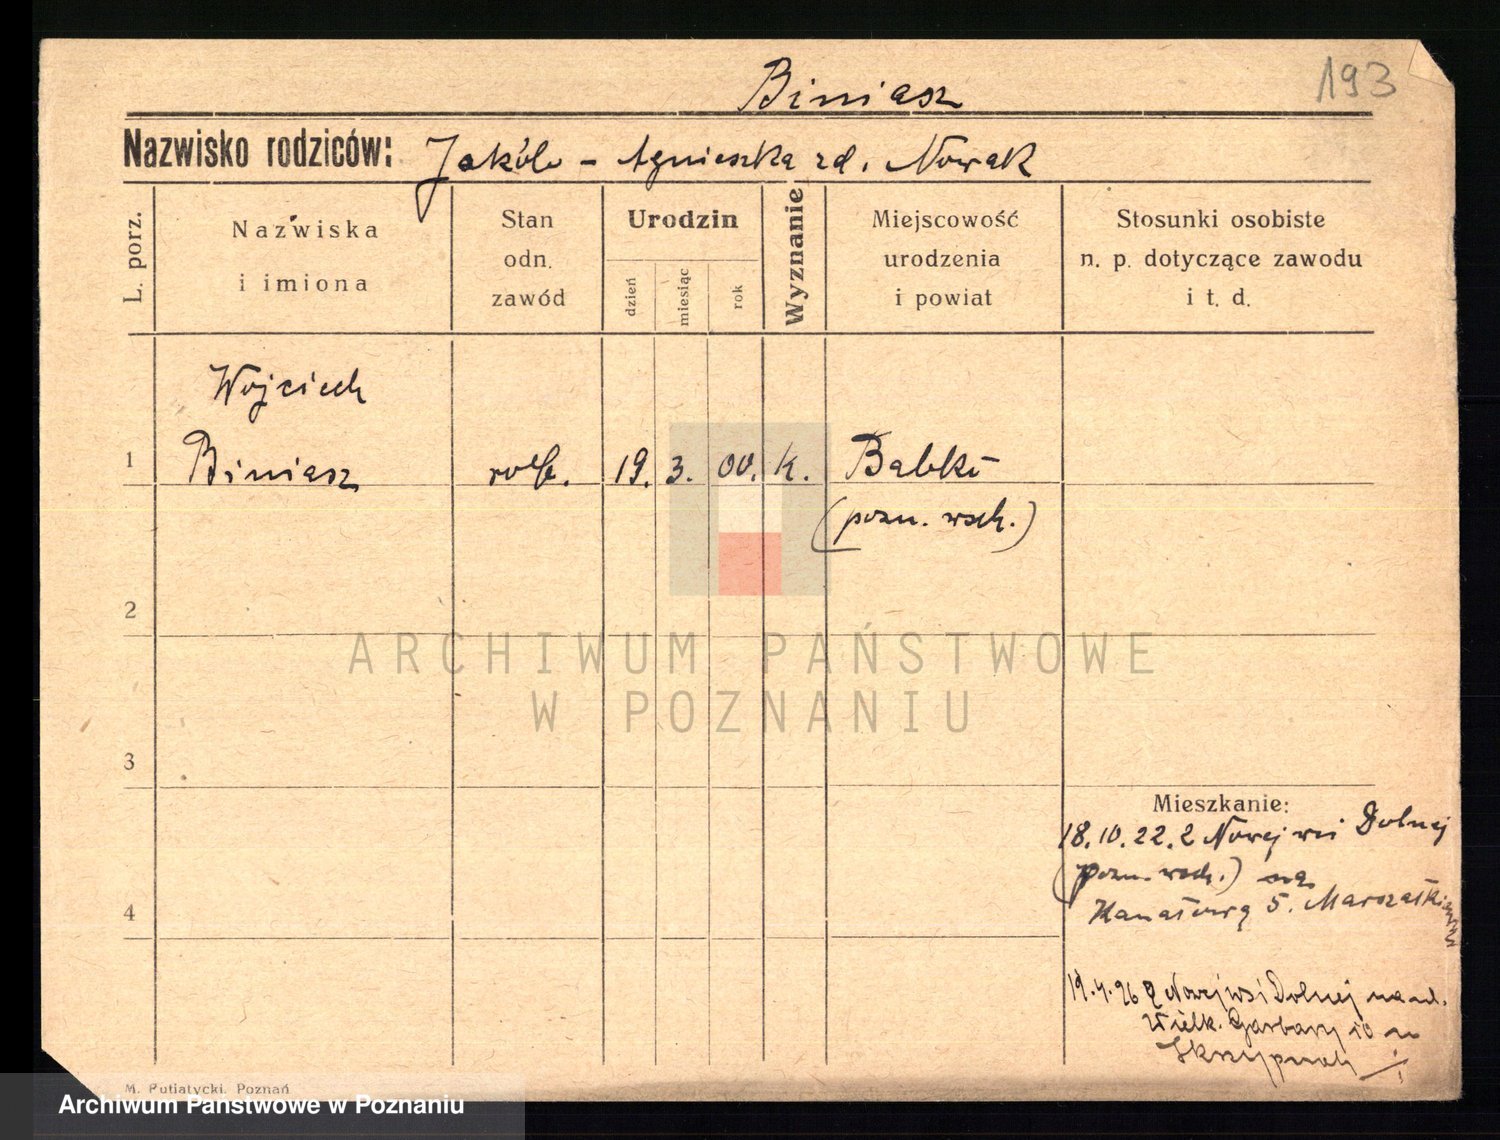 193
Biniasz
Nazwisko rodziców: Jakób - Agnieszka zd. Nowak
L. porz.
Nazwiska
i imiona
Stan
odn.
zawód
Urodzin
dzień
miesiąc
rok
Wyznanie
Miejscowość
urodzenia
i powiat
Stosunki osobiste
n. p. dotyczące zawodu
i t. d.
Wojciech
1 Biniasz rob. 19. 3. 00. k. Babki
(pozn. wsch.)
2
ARCHIWUM PAŃSTWOWE
W POZNANIU
3
Mieszkanie:
18.10.22. z Nowej wsi Dolnej
(pozn. wsch.) na
4
Kanałową 5.
19.4.26 z Nowejwsi Dolnej na ul.
Wielk. Garbary 10 u
M. Putiatycki, Poznań
Archiwum Państwowe w Poznaniu